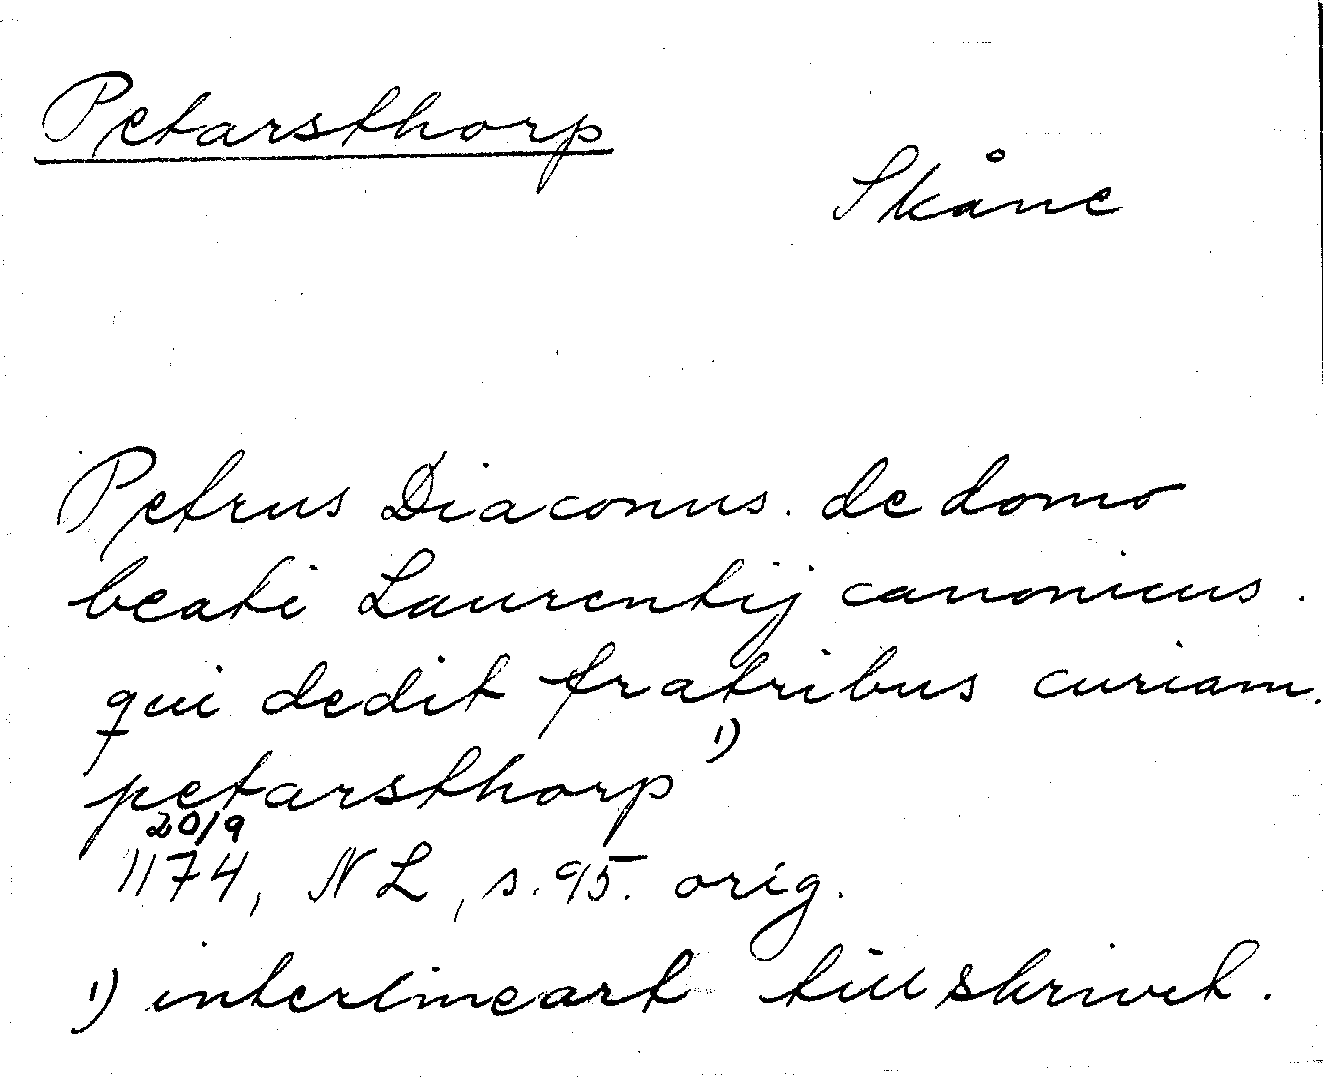 Petarsthorp
Skåne
Petrus Diaconus. de domo
beati Laurentij canonicus.
qui dedit fratribus curiam.
petarsthorp 1)
20/9
1174, NL, s. 95. orig.
1) interlineart tillskrivet.